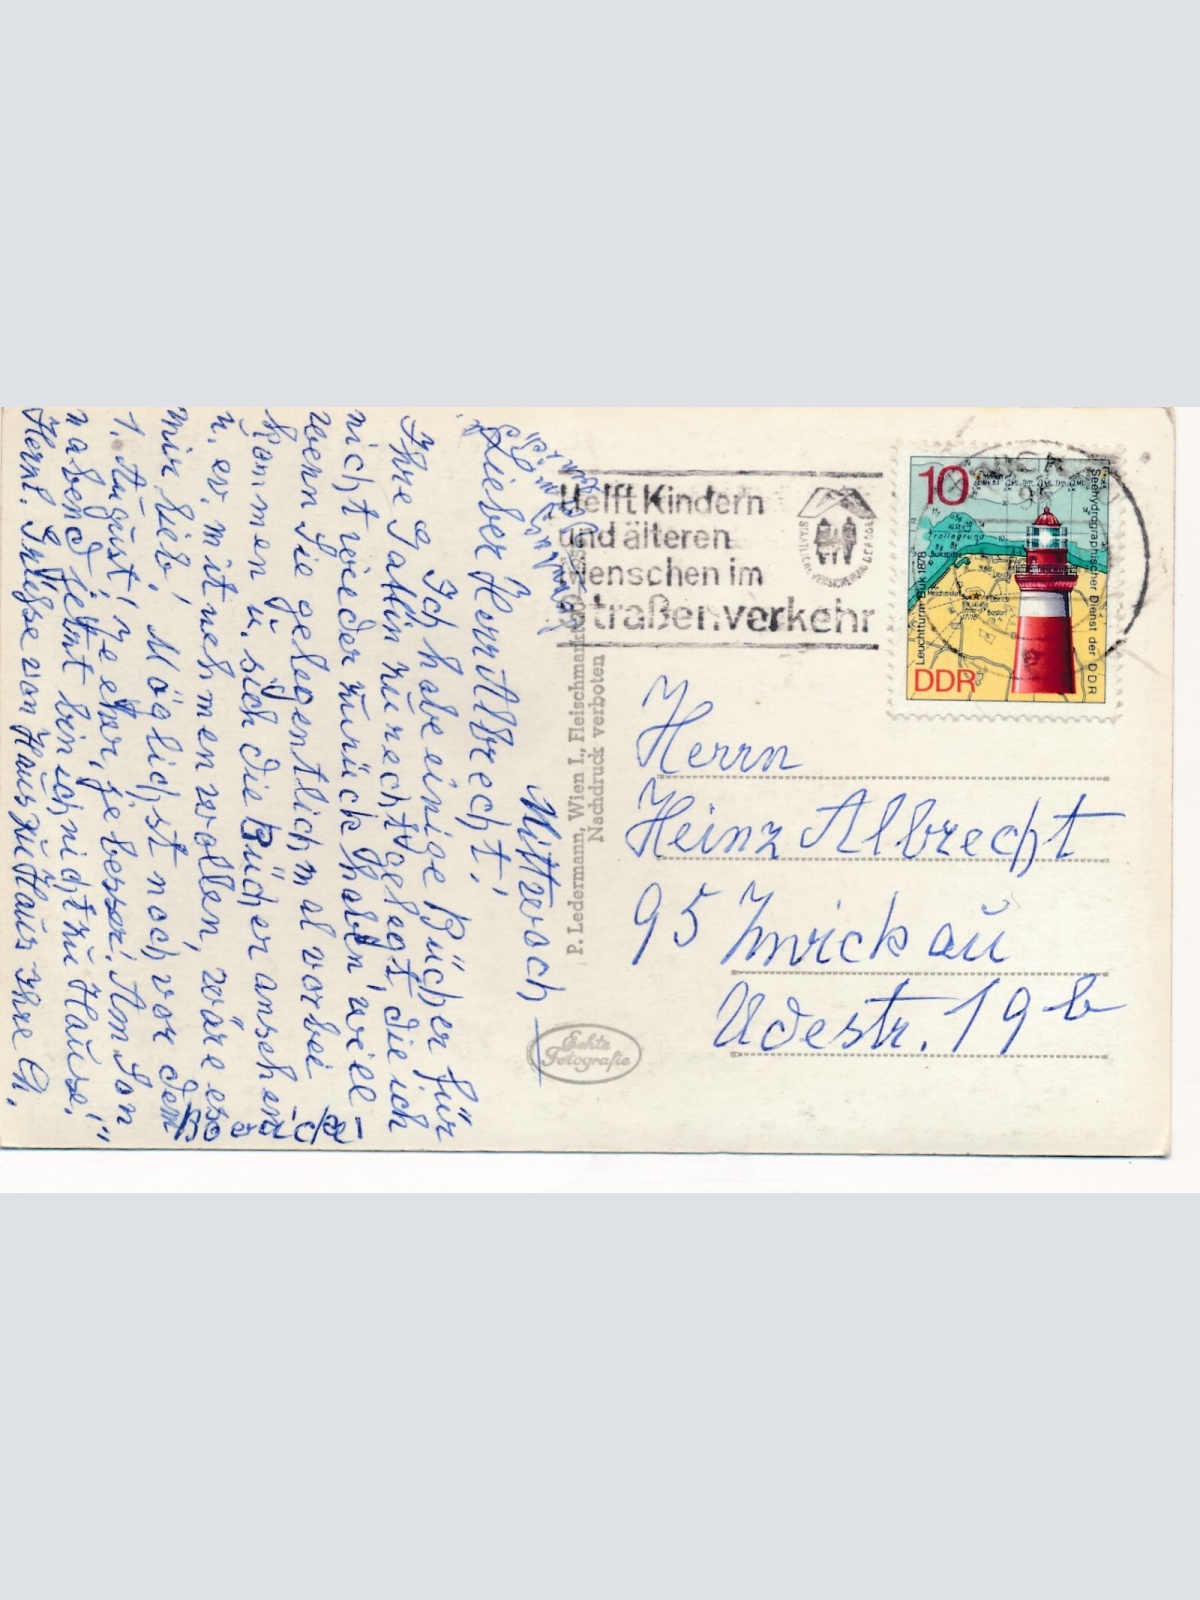 Mittwoch
Lieber Herr Albrecht!
Ich habe einige Bücher für
Ihre Gattin zurecht gelegt, die ich
nicht wieder zurück haben will.
Wenn Sie gelegentlich mal vorbei
kommen u. sich die Bücher ansehen
u. ev. mitnehmen wollen, wäre es
mir lieb. Möglichst noch vor dem
1. August; je eher, je besser! Am Son
nabend
bin ich nicht zu Hause!
Herzl. Grüsse von Haus zu Haus Ihre Ch.
P. Ledermann, Wien I., Fleischmarkt
Nachdruck verboten
Echte
Fotografie
Helft Kindern
und älteren
Menschen im
Straßenverkehr
STAATLICHE VERSICHERUNG DER DDR
10
DDR
Leuchtturm Buk 1878
Seehydrographischer Dienst der DDR
Trollegrund
Bukspitze
Herrn
Heinz Albrecht
95 Zwickau
Uдestr. 19 b